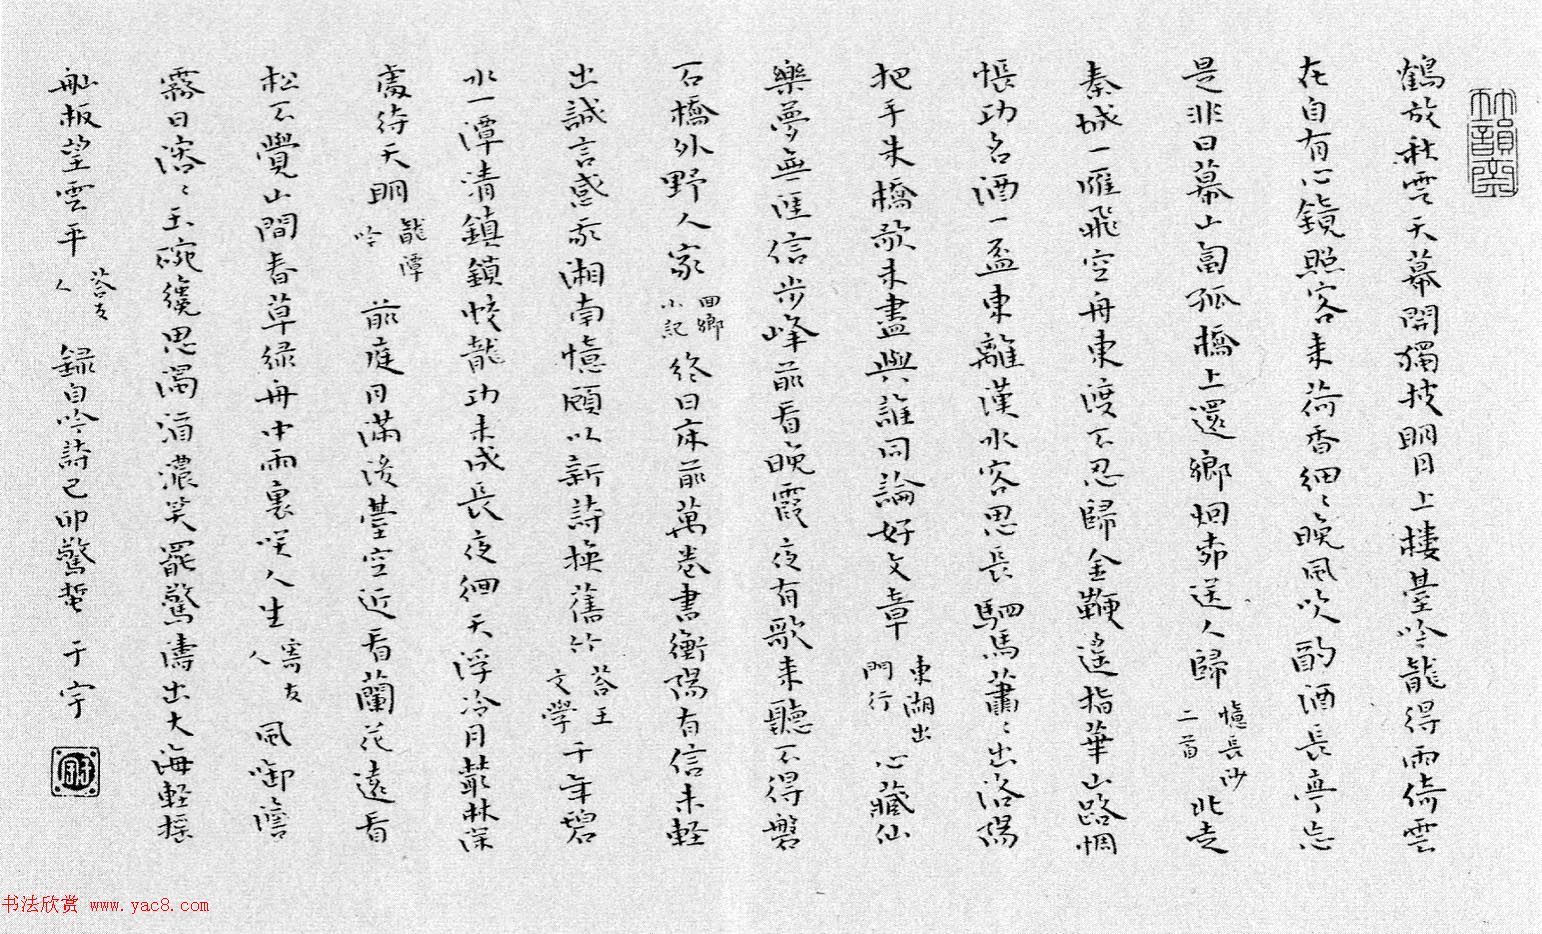 竹韻齋
鶴放秋雲天幕開獨披明月上樓臺吟龍得雨倚雲
在自有心鏡照客來荷香細〻晚風吹酌酒長亭忘
是非日暮山匐孤橋上還鄉烟艸送人歸 憶長沙二首 北走
秦城一雁飛空舟東渡不忍歸金鞭遙指華山路惆
悵功名酒一盃東離漢水客思長駟馬蕭〻出洛陽
把手朱橋歌未盡與誰同論好文章 東湖出門行 心藏仙
樂夢無涯信步峰前看晚霞夜有歌來聽不得磐
石橋外野人家 回鄉小記 終日床前萬卷書衡陽有信未輕
出誠言感承湘南憶願以新詩換舊竹 答王文學 千年碧
水一潭清鎮鎖蛟龍功未成長夜徊天浮冷月叢林深
處待天明 龍潭吟 前庭月滿後臺空近看蘭花遠看
松不覺山間春草綠舟中雨裏咲人生 寄友人 風御澹
霧日溶〻玉碗纔思濁酒濃笑罷驚濤出大海輕搖
舢板望雲平 答友人 録自吟詩己卯驚蟄 于宇
书法欣赏 www.yac8.com